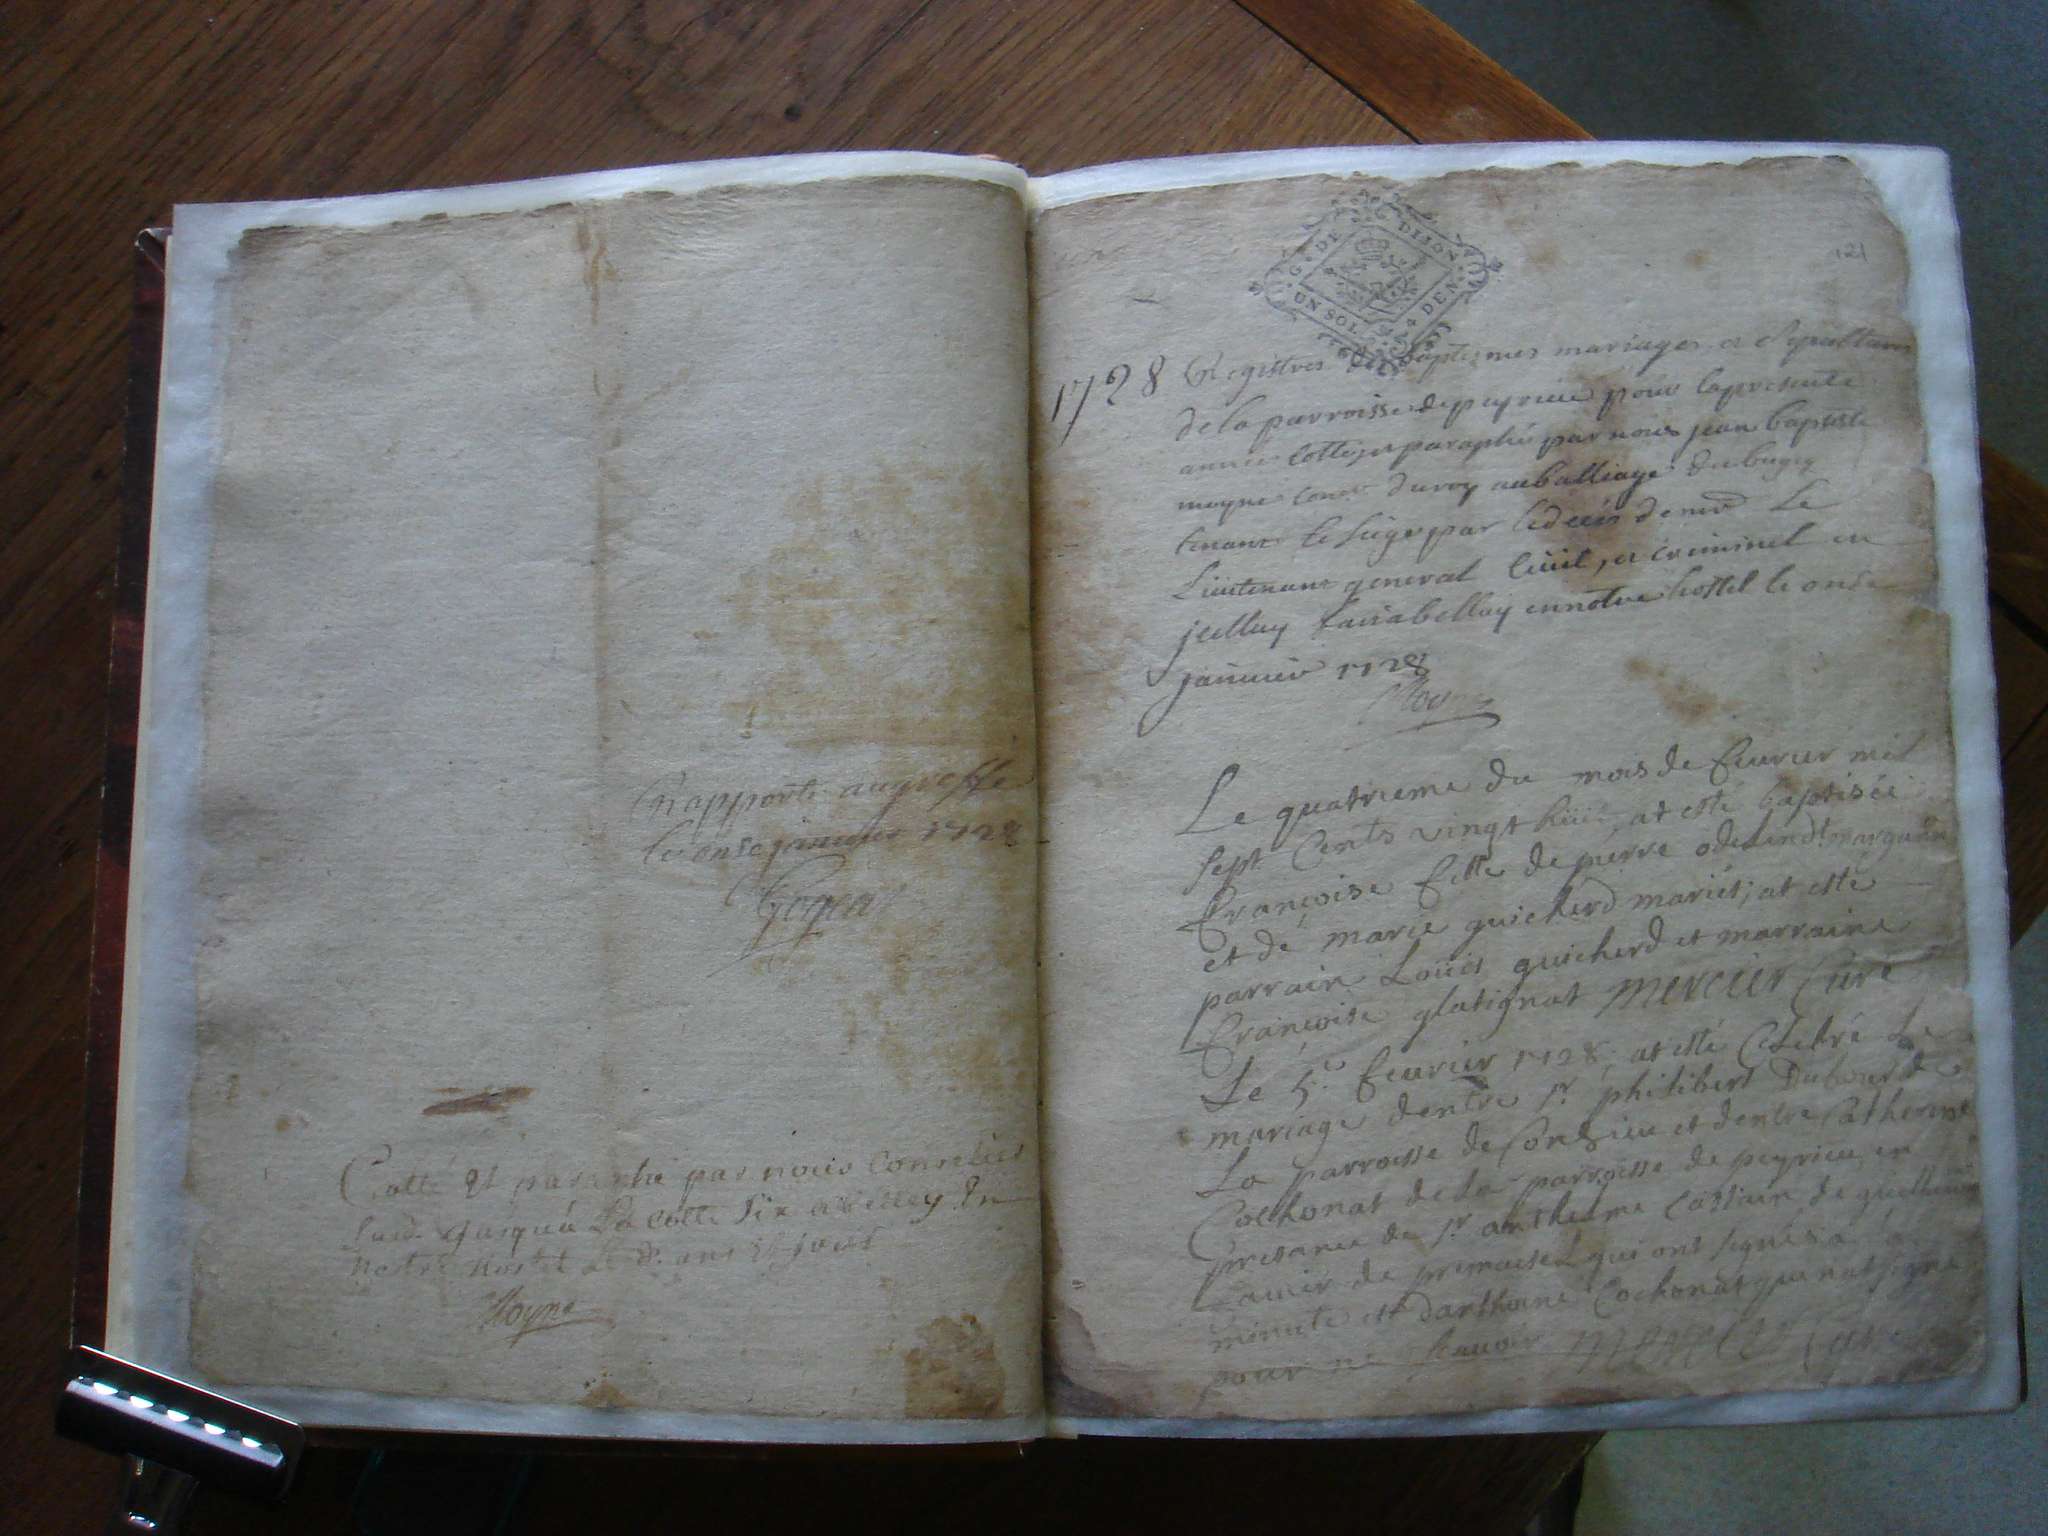 Rapporté au greffe
le onse janvier 1728
Cotté et paraphé par nous Conseiller
susd. jusqu'a La cotte Six a Belley En
nostre hostel les d. ans et jours
Moyne
G. DE DIJON
UN SOL 4 DEN
121
1728 Registres de baptesmes mariages et sepultures
de la parroisse de peyrieu pour la presente
année Cottés et paraphé par nous jean baptiste
moyne Conser du roy au balliage du bugey
tenant le siege par le decés de mr Le
Lieutenant general Ciuil, et Criminel en
jcelluy fait a belley en notre hostel le onse
januier 1728
Moyne
Le quatrieme du mois de feurier mil
sept Cents vingt huit, at esté baptisée
françoise fille de pierre odet
et de marie guicherd mariés; at esté
parrain Loüis guicherd et marraine
françoise glatignat mercier Curé
Le 5.e feurier 1728, at esté Celebré Le
mariage dentre sr. philibert Dubourd de
La parroisse de Conzieu et dentre Catherine
Cochonat de la parroisse de peyrieu, en
presance de sr. antherme
qui ont signés a la
minute et danthoine Cochonat qui nat signé
pour ne scauoir mercier Curé